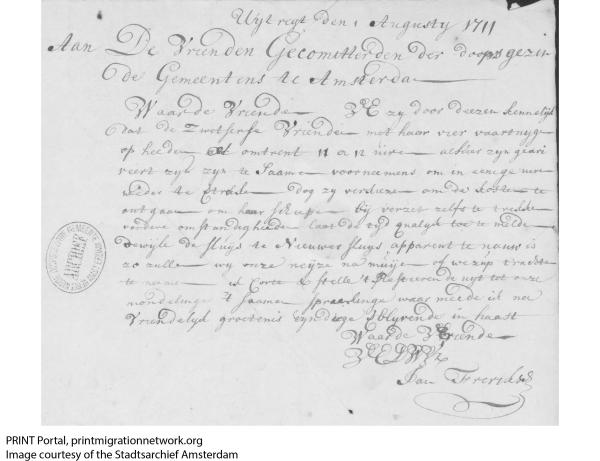 Uijtregt den 1 Augusty 1711
Aan De Vrienden Gecomitterden der doopsgezin
de Gemeentens te Amsterda
Waarde Vriende ZEE zy door deezen kennelyk
dat de Zwitserse Vriende met haar vier vaartuyge
op heeden omtrent 11 a 12 uire alhier zyn gearri
veert zyn zyn te saame voorneemens om in eenige uure
weeder te dog zy om de koste te
ontgaan om haar scheepe bij zelfs te
verdere omstandigheede laat de tyd qualyk toe te melde
dewyle de sluys te Nieuwersluys apparent te nauw is
zo zulle wy onze reijze na muije of weezup trachte
te neeme in Corte te stelle 't resteerende uyt tot onze
mondelinge 't saamen spreekinge waar meede ik na
Vriendelyk groetenis eyndige & blyvende in haast
Waarde Vriende
Jan Frerickse
PRINT Portal, printmigrationnetwork.org
Image courtesy of the Stadtsarchief Amsterdam